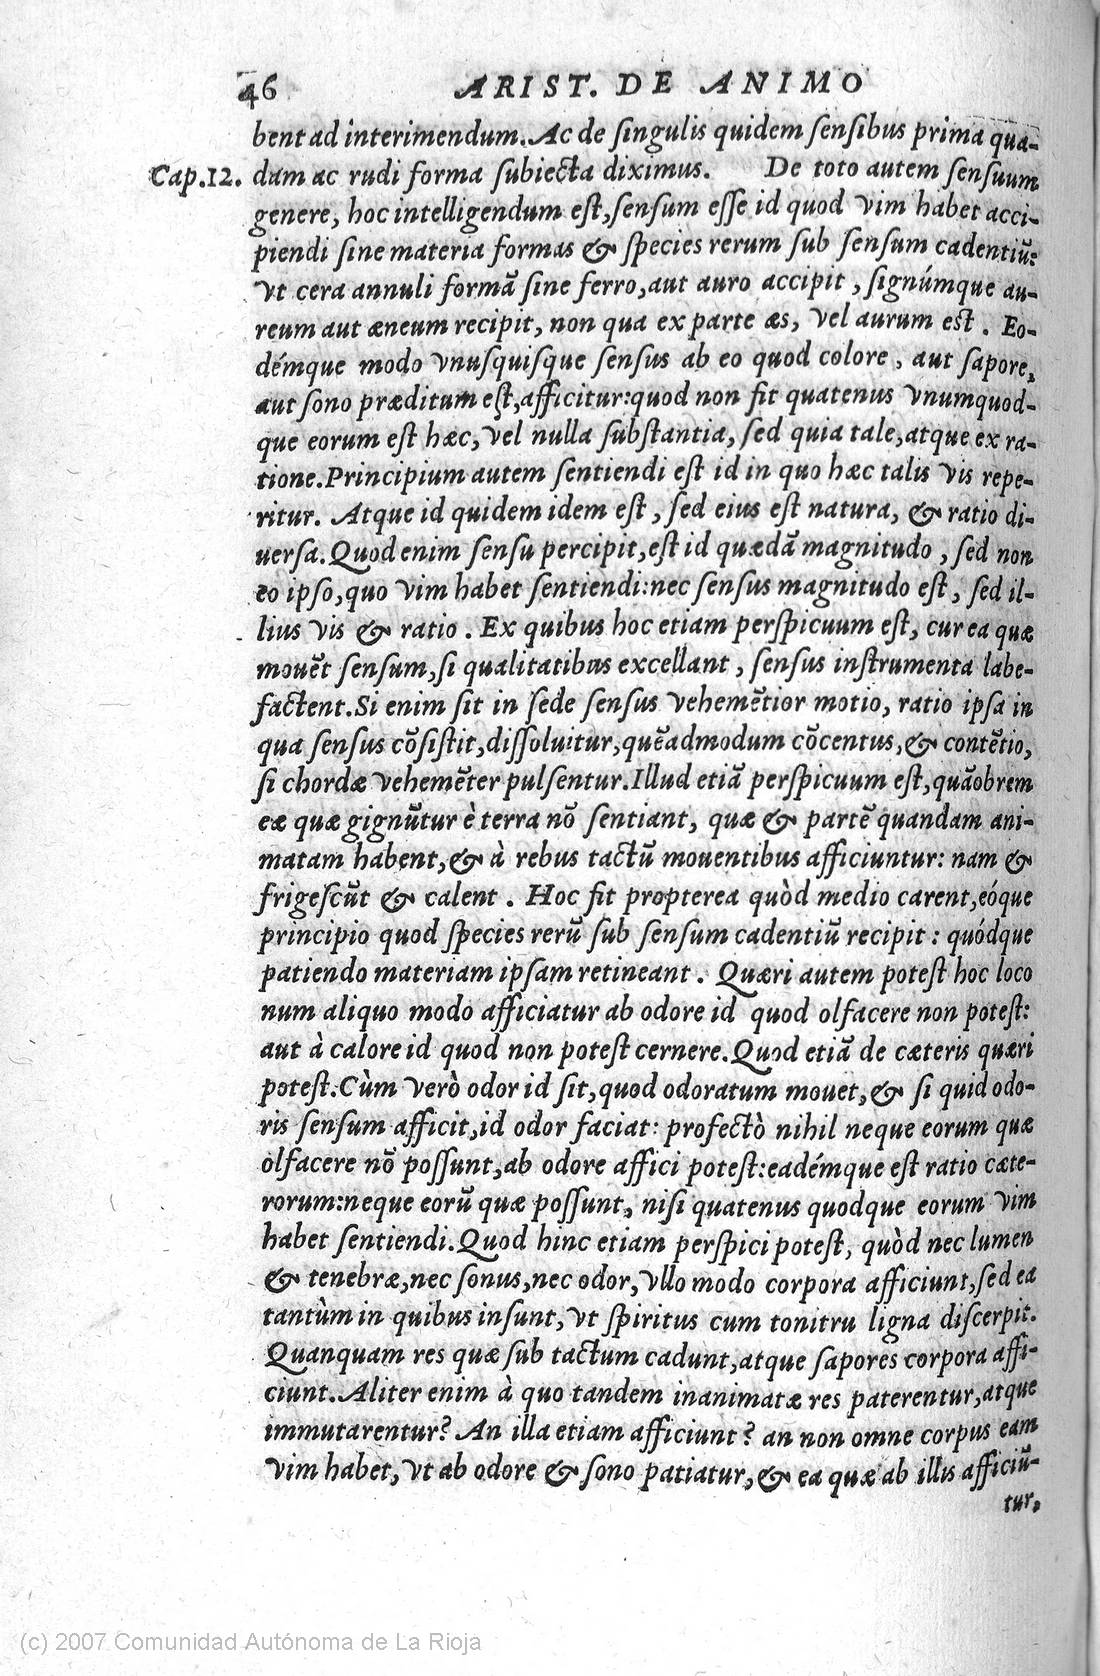 46 ARIST. DE ANIMO
bent ad interimendum. Ac de singulis quidem sensibus prima qua-
Cap. 12. dam ac rudi forma subiecta diximus. De toto autem sensuum
genere, hoc intelligendum est, sensum esse id quod vim habet acci-
piendi sine materia formas & species rerum sub sensum cadentiũ:
vt cera annuli formã sine ferro, aut auro accipit, signúmque au-
reum aut æneum recipit, non qua ex parte æs, vel aurum est. Eo-
démque modo vnusquisque sensus ab eo quod colore, aut sapore,
aut sono præditum est, afficitur: quod non fit quatenus vnumquod-
que eorum est hæc, vel nulla substantia, sed quia tale, atque ex ra-
tione. Principium autem sentiendi est id in quo hæc talis vis repe-
ritur. Atque id quidem idem est, sed eius est natura, & ratio di-
uersa. Quod enim sensu percipit, est id quædã magnitudo, sed non
eo ipso, quo vim habet sentiendi: nec sensus magnitudo est, sed il-
lius vis & ratio. Ex quibus hoc etiam perspicuum est, cur ea quæ
mouẽt sensum, si qualitatibus excellant, sensus instrumenta labe-
factent. Si enim sit in sede sensus vehemẽtior motio, ratio ipsa in
qua sensus cõsistit, dissoluitur, quẽadmodum cõcentus, & contẽtio,
si chordæ vehemẽter pulsentur. Illud etiã perspicuum est, quãobrem
eæ quæ gignũtur è terra nõ sentiant, quæ & partẽ quandam ani-
matam habent, & à rebus tactũ mouentibus afficiuntur: nam &
frigescũt & calent. Hoc fit propterea quòd medio carent, eóque
principio quod species rerũ sub sensum cadentiũ recipit: quódque
patiendo materiam ipsam retineant. Quæri autem potest hoc loco
num aliquo modo afficiatur ab odore id quod olfacere non potest:
aut à calore id quod non potest cernere. Quod etiã de cæteris quæri
potest. Cùm verò odor id sit, quod odoratum mouet, & si quid odo-
ris sensum afficit, id odor faciat: profectò nihil neque eorum quæ
olfacere nõ possunt, ab odore affici potest: eadémque est ratio cæte-
rorum: neque eorũ quæ possunt, nisi quatenus quodque eorum vim
habet sentiendi. Quod hinc etiam perspici potest, quòd nec lumen
& tenebræ, nec sonus, nec odor, vllo modo corpora afficiunt, sed ea
tantùm in quibus insunt, vt spiritus cum tonitru ligna discerpit.
Quanquam res quæ sub tactum cadunt, atque sapores corpora affi-
ciunt. Aliter enim à quo tandem inanimatæ res paterentur, atque
immutarentur? An illa etiam afficiunt? an non omne corpus eam
vim habet, vt ab odore & sono patiatur, & ea quæ ab illis afficiũ-
tur,
(c) 2007 Comunidad Autónoma de La Rioja